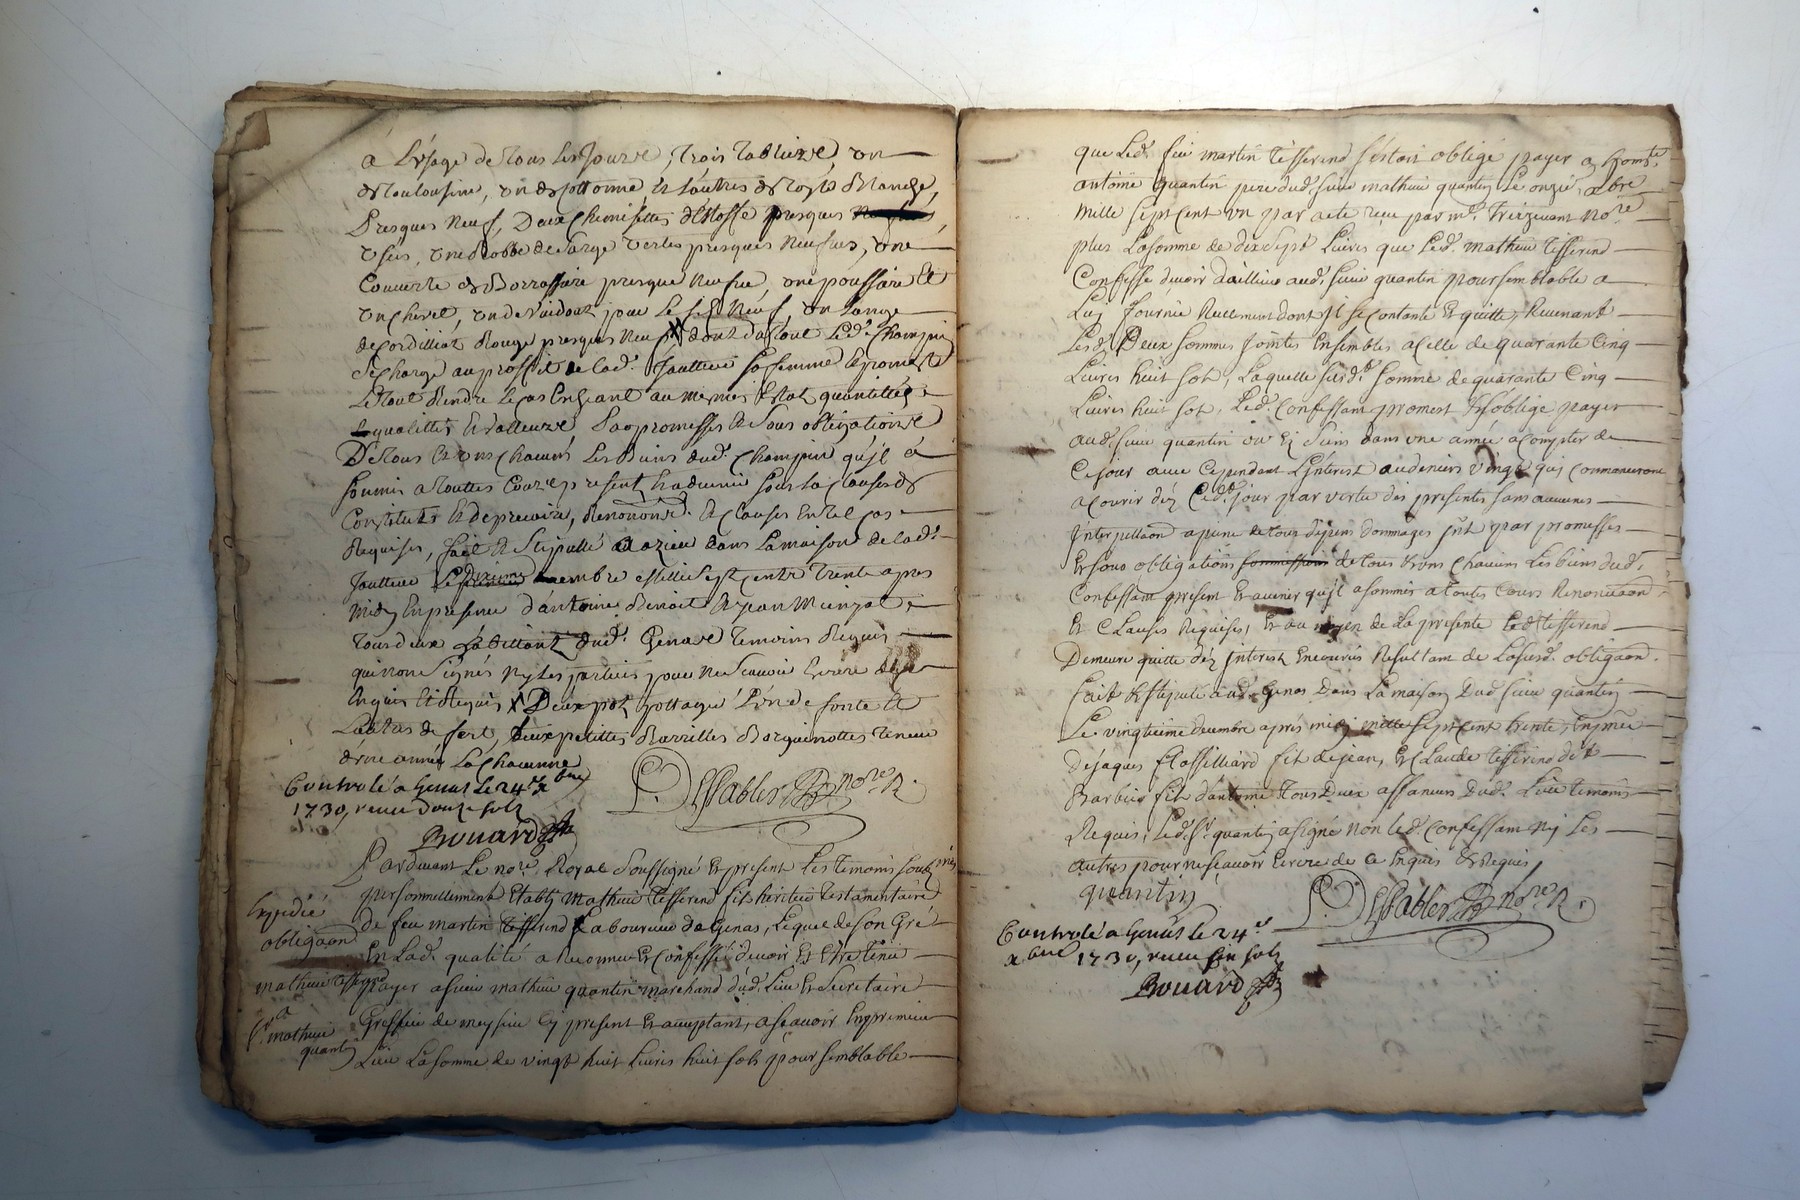 a L'usage de tous les Jours, trois tabliers, un
de toulousine, un de cottonne et l'autres de toille blanche,
Presques neuf, Deux chemisettes d'étoffe presques
usés, une Robbe de sarge verte presques neufve, une
Couverte de Bourrassire presque neufve, une poussire et
un chevet, un devidoir pour le fil neuf, un lange
de cordilliat Rouge presques neuf dont du tout Led. Champin
se charge au proffit de lad. Jouttieu sa femme et promest
Le tout Rendre le cas Escheant au mesmes Estat, quantittés
qualittés et valleurs par promesses et sous obligations
De tous et uns chacuns Les Biens dud. Champin qu'jl a
soumis a touttes Cours
Constitut et de precaire, Renoncons. et clauses En tel cas
Requises, fait et stipullé a azieu dans La maison de lad.
Jouttieu Le mille sept cents trente apres
midy En presence d'antoine Benoit et Jean
tous deux habittants dud. Genas temoins Requis
qui n'ont signés ny Les parties pour ne scavoir Ecrire de ce
Enquis et Requis X Deux pot pottager l'un de fonte et
L'autre de fert, deux petittes Barrilles Barquinottes teneue
d'une année La Chacunne
Controlé a Genas le 24e xbre
1730, receu douze sols
P. Dessablers No.re R.
Rouard
Pardevant Le no.re Royal soussigné et present Les temoins
personnellement Etably mathieu tisserend fils heritier testamentaire
de feu martin tisserend Laboureur de Genas, Lequel de son Gré
En Lad. qualité a Reconneu et Confessé devoir et Etre tenu
payer a sieur mathieu quantin marchand dud. Lieu et secretaire
Greffier de meysieu cy present et acceptant, ascavoir En premier
Lieu La somme de vingt huit Livres huit sols pour semblable
Expedié
obligaon
mathieu tisserend
a
Sr. mathieu
quantin
que Led. feu martin tisserend s'estoit obligé payer a honte.
antoine quantin pere dud. sieur mathieu quantin Le onzie. xbre
mille sept cent un par acte receu par me. no.re
plus La somme de dix sept Livres que Led. mathieu tisserend
Confesse devoir d'ailleurs aud. sieur quantin pour semblable a
Luy fournie Reellement dont jl se contante et quitte, Revenant
Lesd. Deux sommes jointes Ensembles a celle de quarante cinq
Livres huit sols, Laquelle susd. somme de quarante cinq
Livres huit sols, Led. Confessant promest et s'oblige payer
aud. sieur quantin ou Es siens dans une année a compter de
ce jour avec cependant L'interest au deniers vingt qui commancera
a courir déz Ced. jour par vertu des presentes sans aucunes
Interpellaon a peine de tous depens dommages Int. par promesses
et sous obligations soumissions de tous et uns chacuns Les biens dud.
Confessant present et avenir qu'jl a sommis a toutes Cours Renonciaon.
et Clauses Requises, et au moyen de La presente Led. tisserend
Demeure quitte déz Interest Encourus Resultant de La susd. obligaon.
fait et stipulé aud. Genas Dans La maison Dud sieur quantin
Le vingtieme decembre aprés midy mille sept cent trente, En pnce
de jaques flassilliard fils de jean, et Claude tisserend dit
Barbier fils d'antoine tous Deux affaneurs Dud. Lieu temoins
Requis, Led. Sr. quantin a signé non Led. Confessant ny Les
autres pour ne scavoir Ecrire de ce Enquis et Requis,
quantin
P. Dessablers No.re R.
Controlé a Genas le 24e
xbre 1730, receu six sols
Rouard